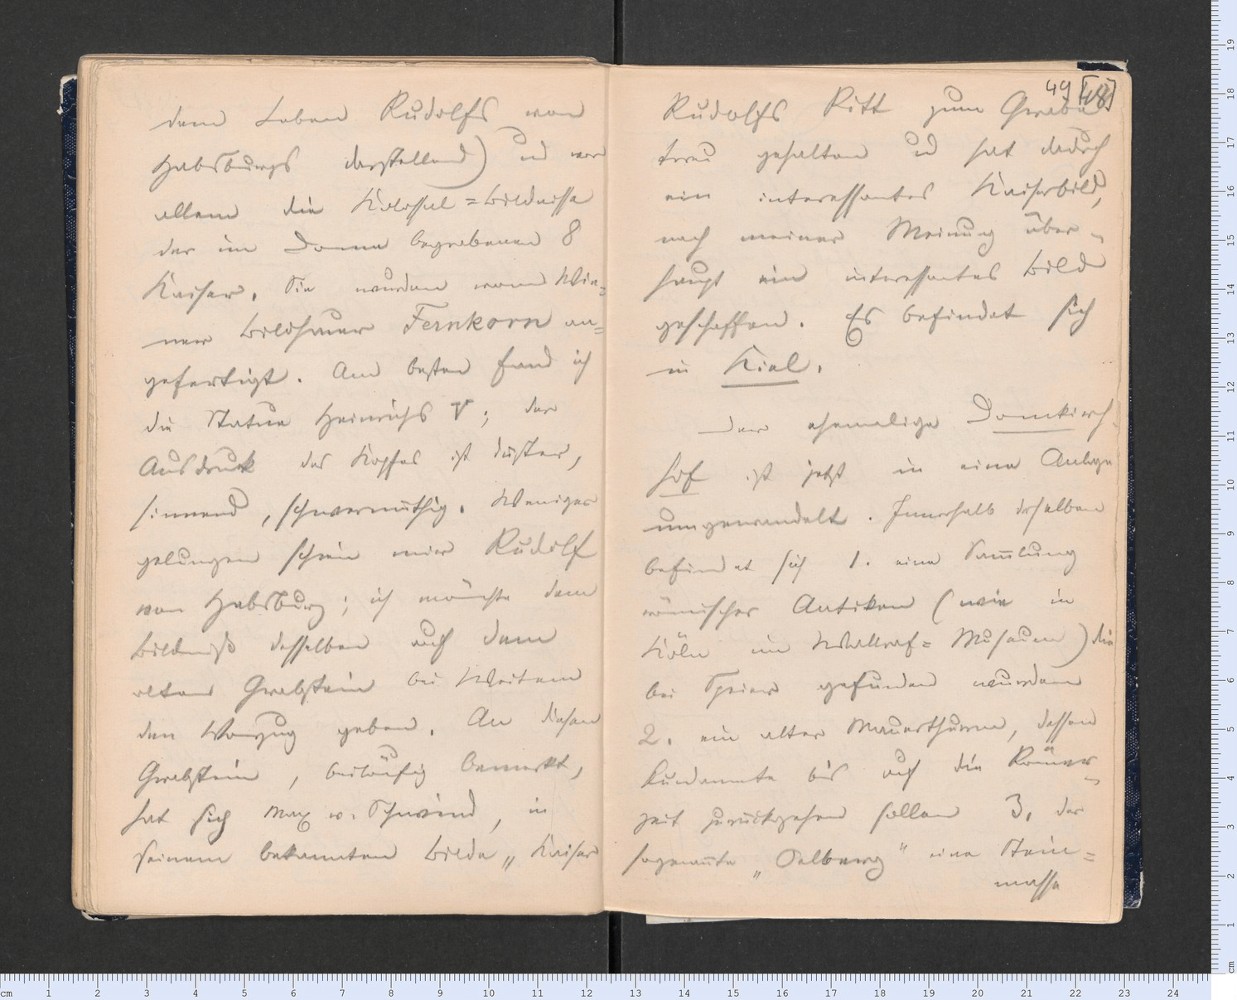 dem Leben Rudolfs von
Habsburgs darstellend) und vor
allem die Kolossal=Bildnisse
der im Dome begrabenen 8
Kaiser. Sie wurden vom Wie=
ner Bildhauer Fernkorn an=
gefertigt. Am besten fand ich
die Statue Heinrichs V; der
Ausdruck des Kopfes ist düster,
sinnend, schwermüthig. Weniger
gelungen schien mir Rudolf
von Habsburg; ich möchte dem
Bildniß desselben auf dem
alten Grabstein bei Weitem
den Vorzug geben. An diesen
Grabstein, beiläufig bemerkt,
hat sich Max v. Schwind, in
seinem bekannten Bilde „Kaiser
49 [48]
Rudolfs Ritt zum Grabe
treu gehalten und hat dadurch
ein interessantes Kaiserbild,
nach meiner Meinung über=
haupt ein interessantes Bild
geschaffen. Es befindet sich
in Kiel.
Der ehemalige Domkirch
hof ist jetzt in eine Anlage
umgewandelt. Innerhalb derselben
befindet sich 1. eine Sammlung
römischer Antiken (wie in
Köln im Wallraf=Museum) die
bei Speier gefunden wurden
2. ein alter Mauerthurm, dessen
Fundamente bis auf die Römer=
zeit zurückgehen sollen 3. der
sogenannte „Oelberg" eine Stein=
masse